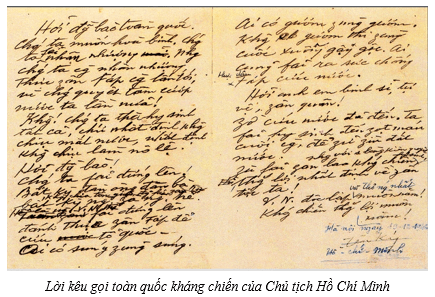 Hỡi đồng bào toàn quốc
chúng ta muốn hoà bình, chúng
ta nhân nhượng. Nhưng
chúng ta càng nhân nhượng
thực dân Pháp càng lấn tới,
vì chúng quyết tâm cướp
nước ta lần nữa!
Không! chúng ta thà hy sinh
tất cả, chứ nhất định không
chịu mất nước, nhất định
không chịu làm nô lệ.
Hỡi đồng bào!
Chúng ta fải đứng lên.
đánh thực zân Fáp để
cứu tổ quốc.
Ai có súng zùng súng.
Ai có gươm zùng gươm.
Không có gươm thì zùng
cuốc xuổng gậy gộc. Ai
cũng fải ra sức chống
Fáp cứu nước.
Hỡi anh em binh sĩ, tự
vệ, zân quân!
Zờ cứu nước đã đến. ta
fải hy sinh đến zọt máu
cuối cùng, để zữ zìn đất
nước.
zù fải zan lao kháng chiến,
nhất định về zân
tộc ta!
V.N. độc lập và thống nhất muôn năm!
Kháng chiến thắng lợi muôn
năm!
Hà nội ngày 19-12-1946
Hồ-chí-Minh
Lời kêu gọi toàn quốc kháng chiến của Chủ tịch Hồ Chí Minh